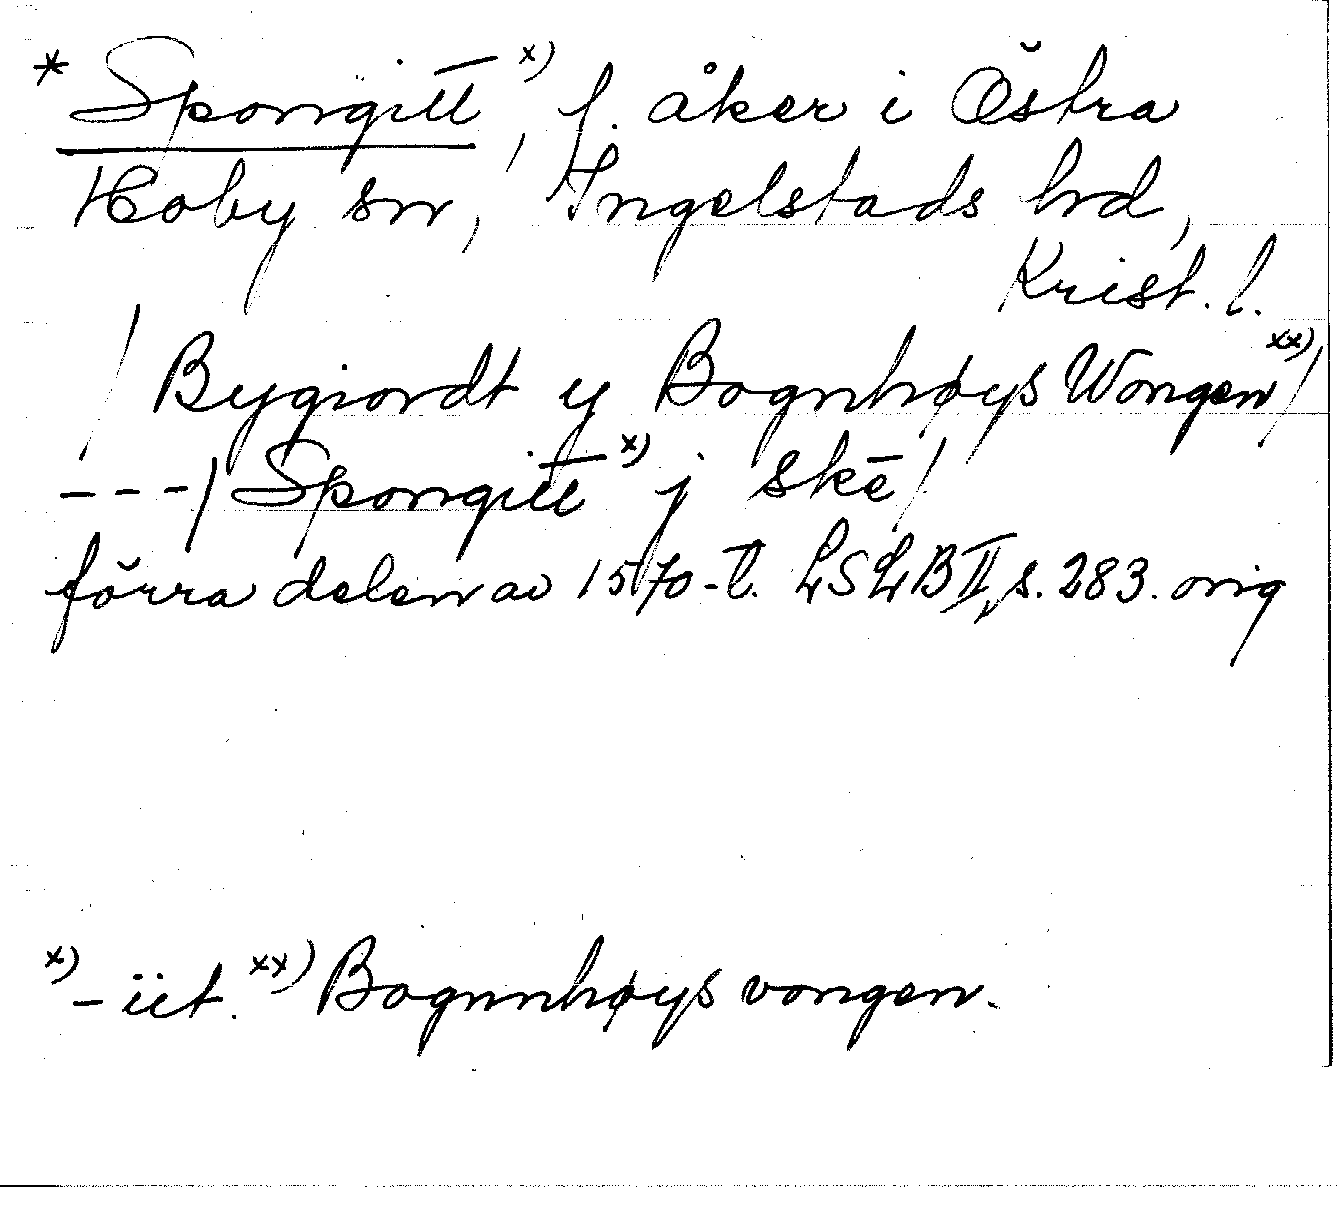 * Spongitt x), f. åker i Östra
Hoby sn, Ingelstads hrd,
Krist. l.
/ Bygiordt y Bognhøys Wongen xx) /
--- / Spongitt x) j skē /
förra delen av 1570-t. LSLB II, s. 283. orig
x) -iit. xx) Bognnhøys vongen.